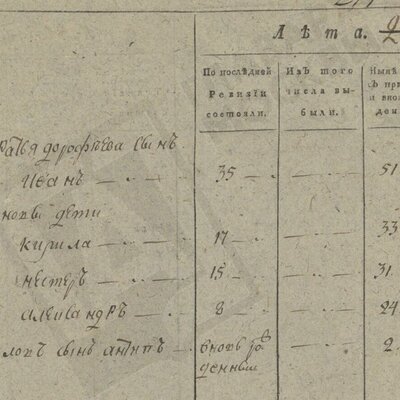 Лѣта.
По послѣдней Ревизіи состояли.
Изъ того числа выбыли.
Нынѣ
дорофѣева сынъ
Иванъ 35 51
дети
кирила 17 33
нестеръ 15 31
александръ 8 24
сынъ антипъ вновь рожденный 2